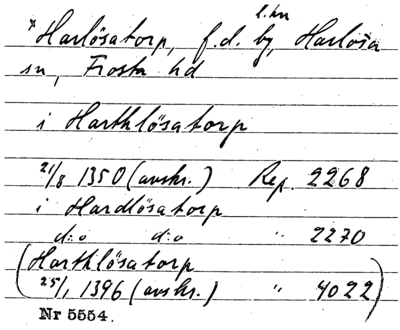 l. hu
*Harlösatorp, f.d. by, Harlösa
sn, Frosta hd
i Harthlösatorp
21/8 1350 (avskr.) Rep. 2268
i Hardlösatorp
d:o d:o " 2270
(Harthlösatorp
25/1 1396 (avskr.) " 4022)
Nr 5554.